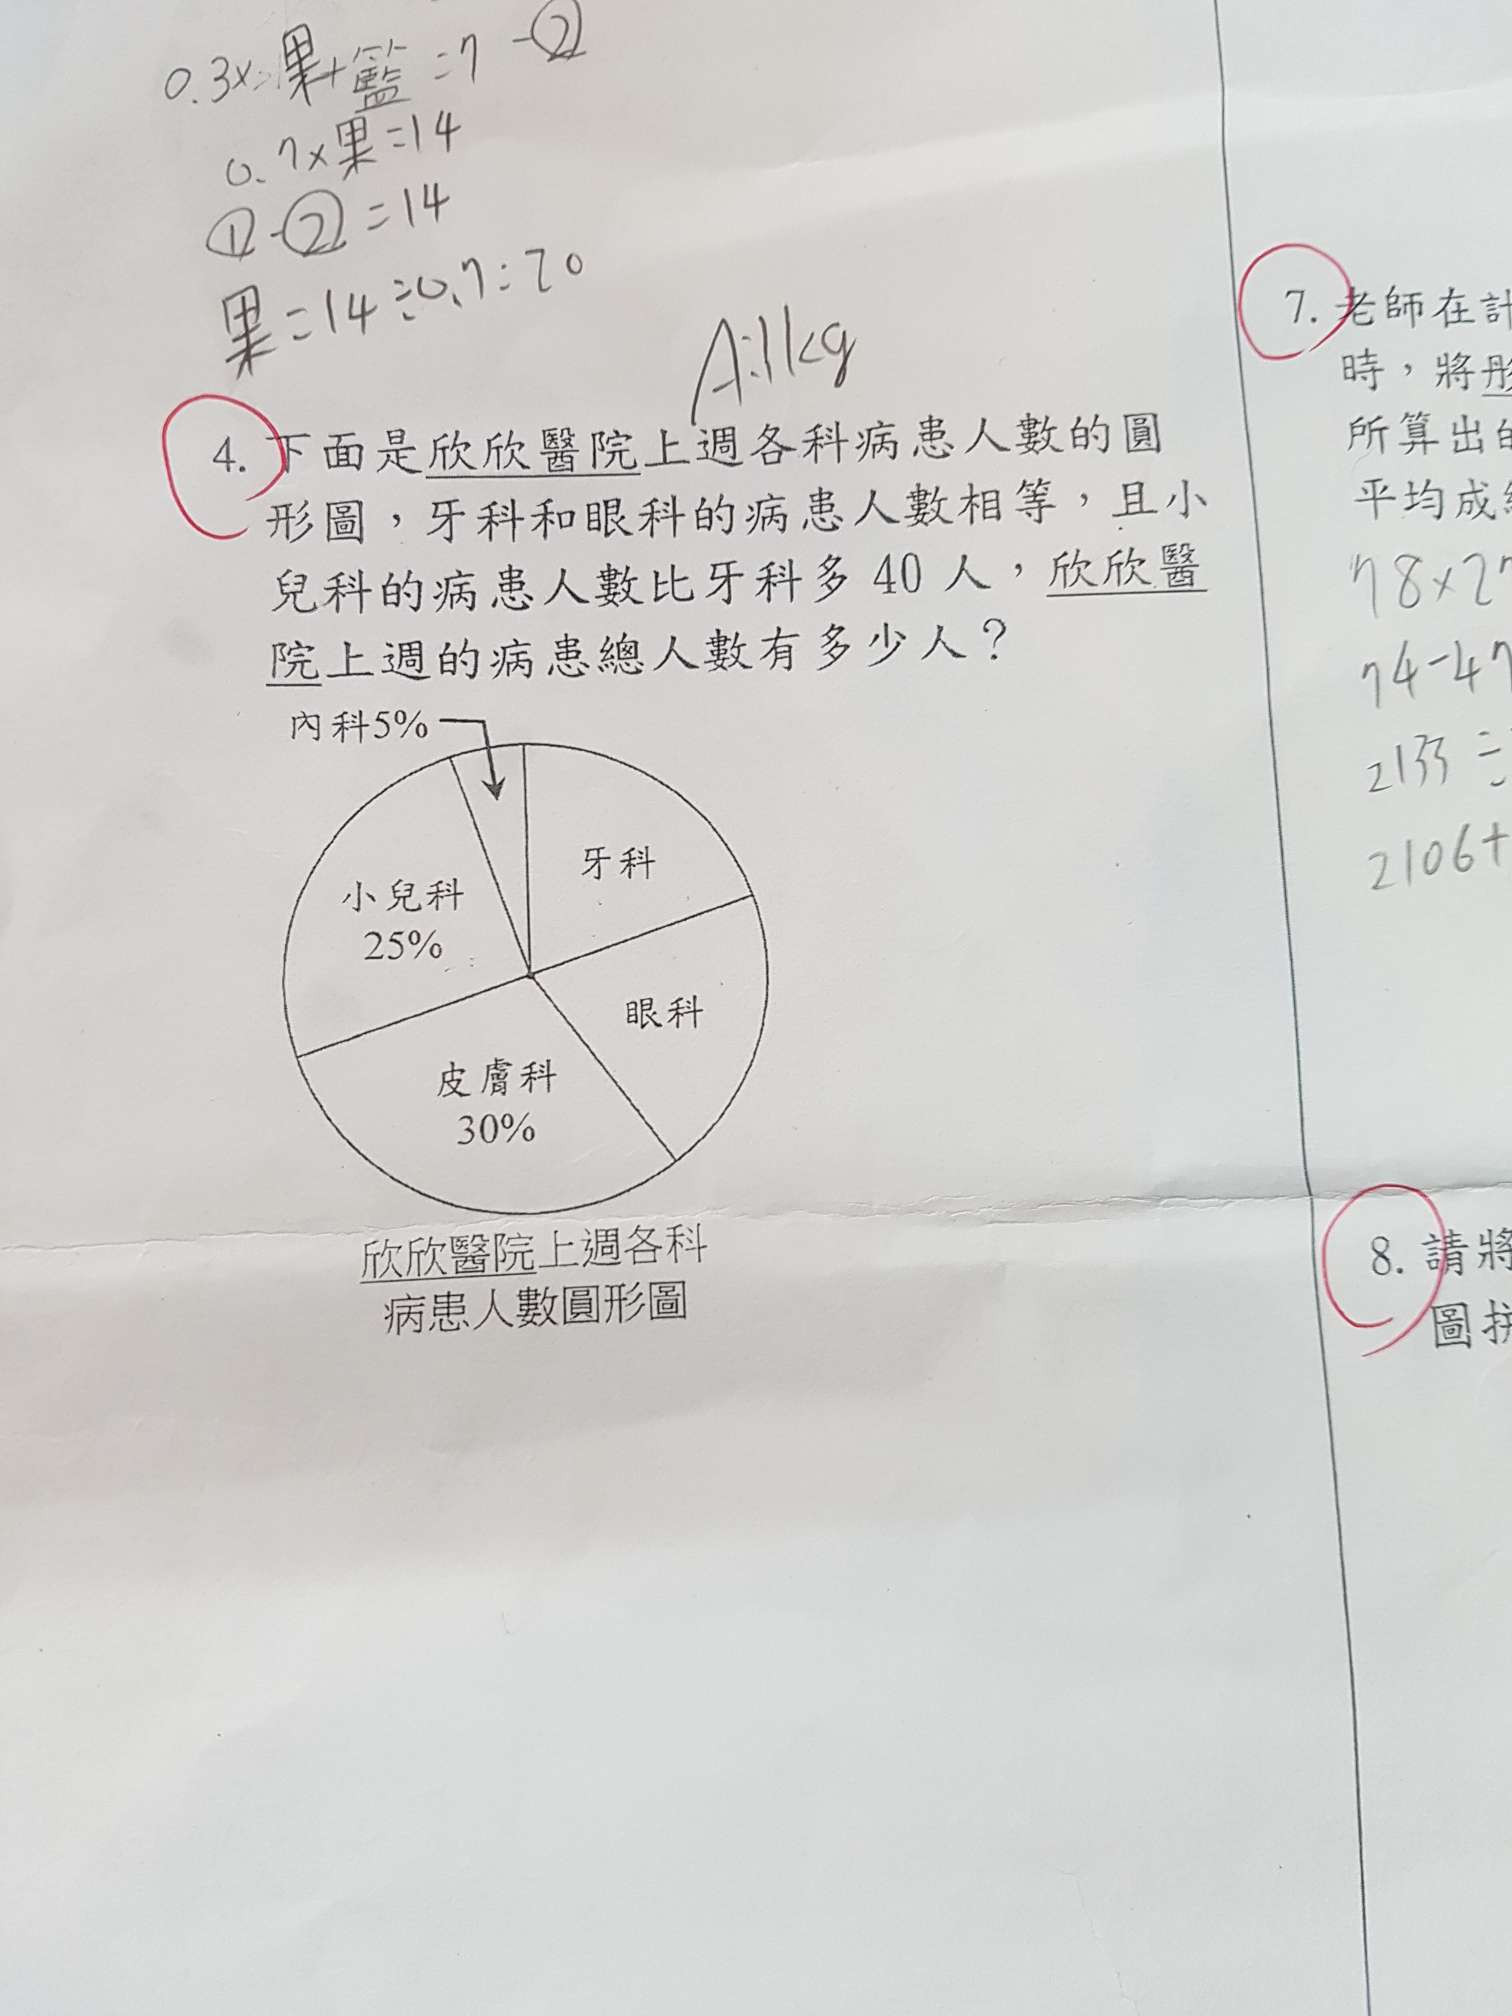 0.3×果+籃=7 -②
0.7×果=14
①-②=14
果=14÷0.7=20
A:1kg
4. 下面是欣欣醫院上週各科病患人數的圓
形圖，牙科和眼科的病患人數相等，且小
兒科的病患人數比牙科多 40 人，欣欣醫
院上週的病患總人數有多少人？
內科5%
牙科
小兒科
25%
眼科
皮膚科
30%
欣欣醫院上週各科
病患人數圓形圖
7. 老師在計
時，將彤
所算出的
平均成
78×27
74-47
2133÷
2106+
8. 請將
圖拼